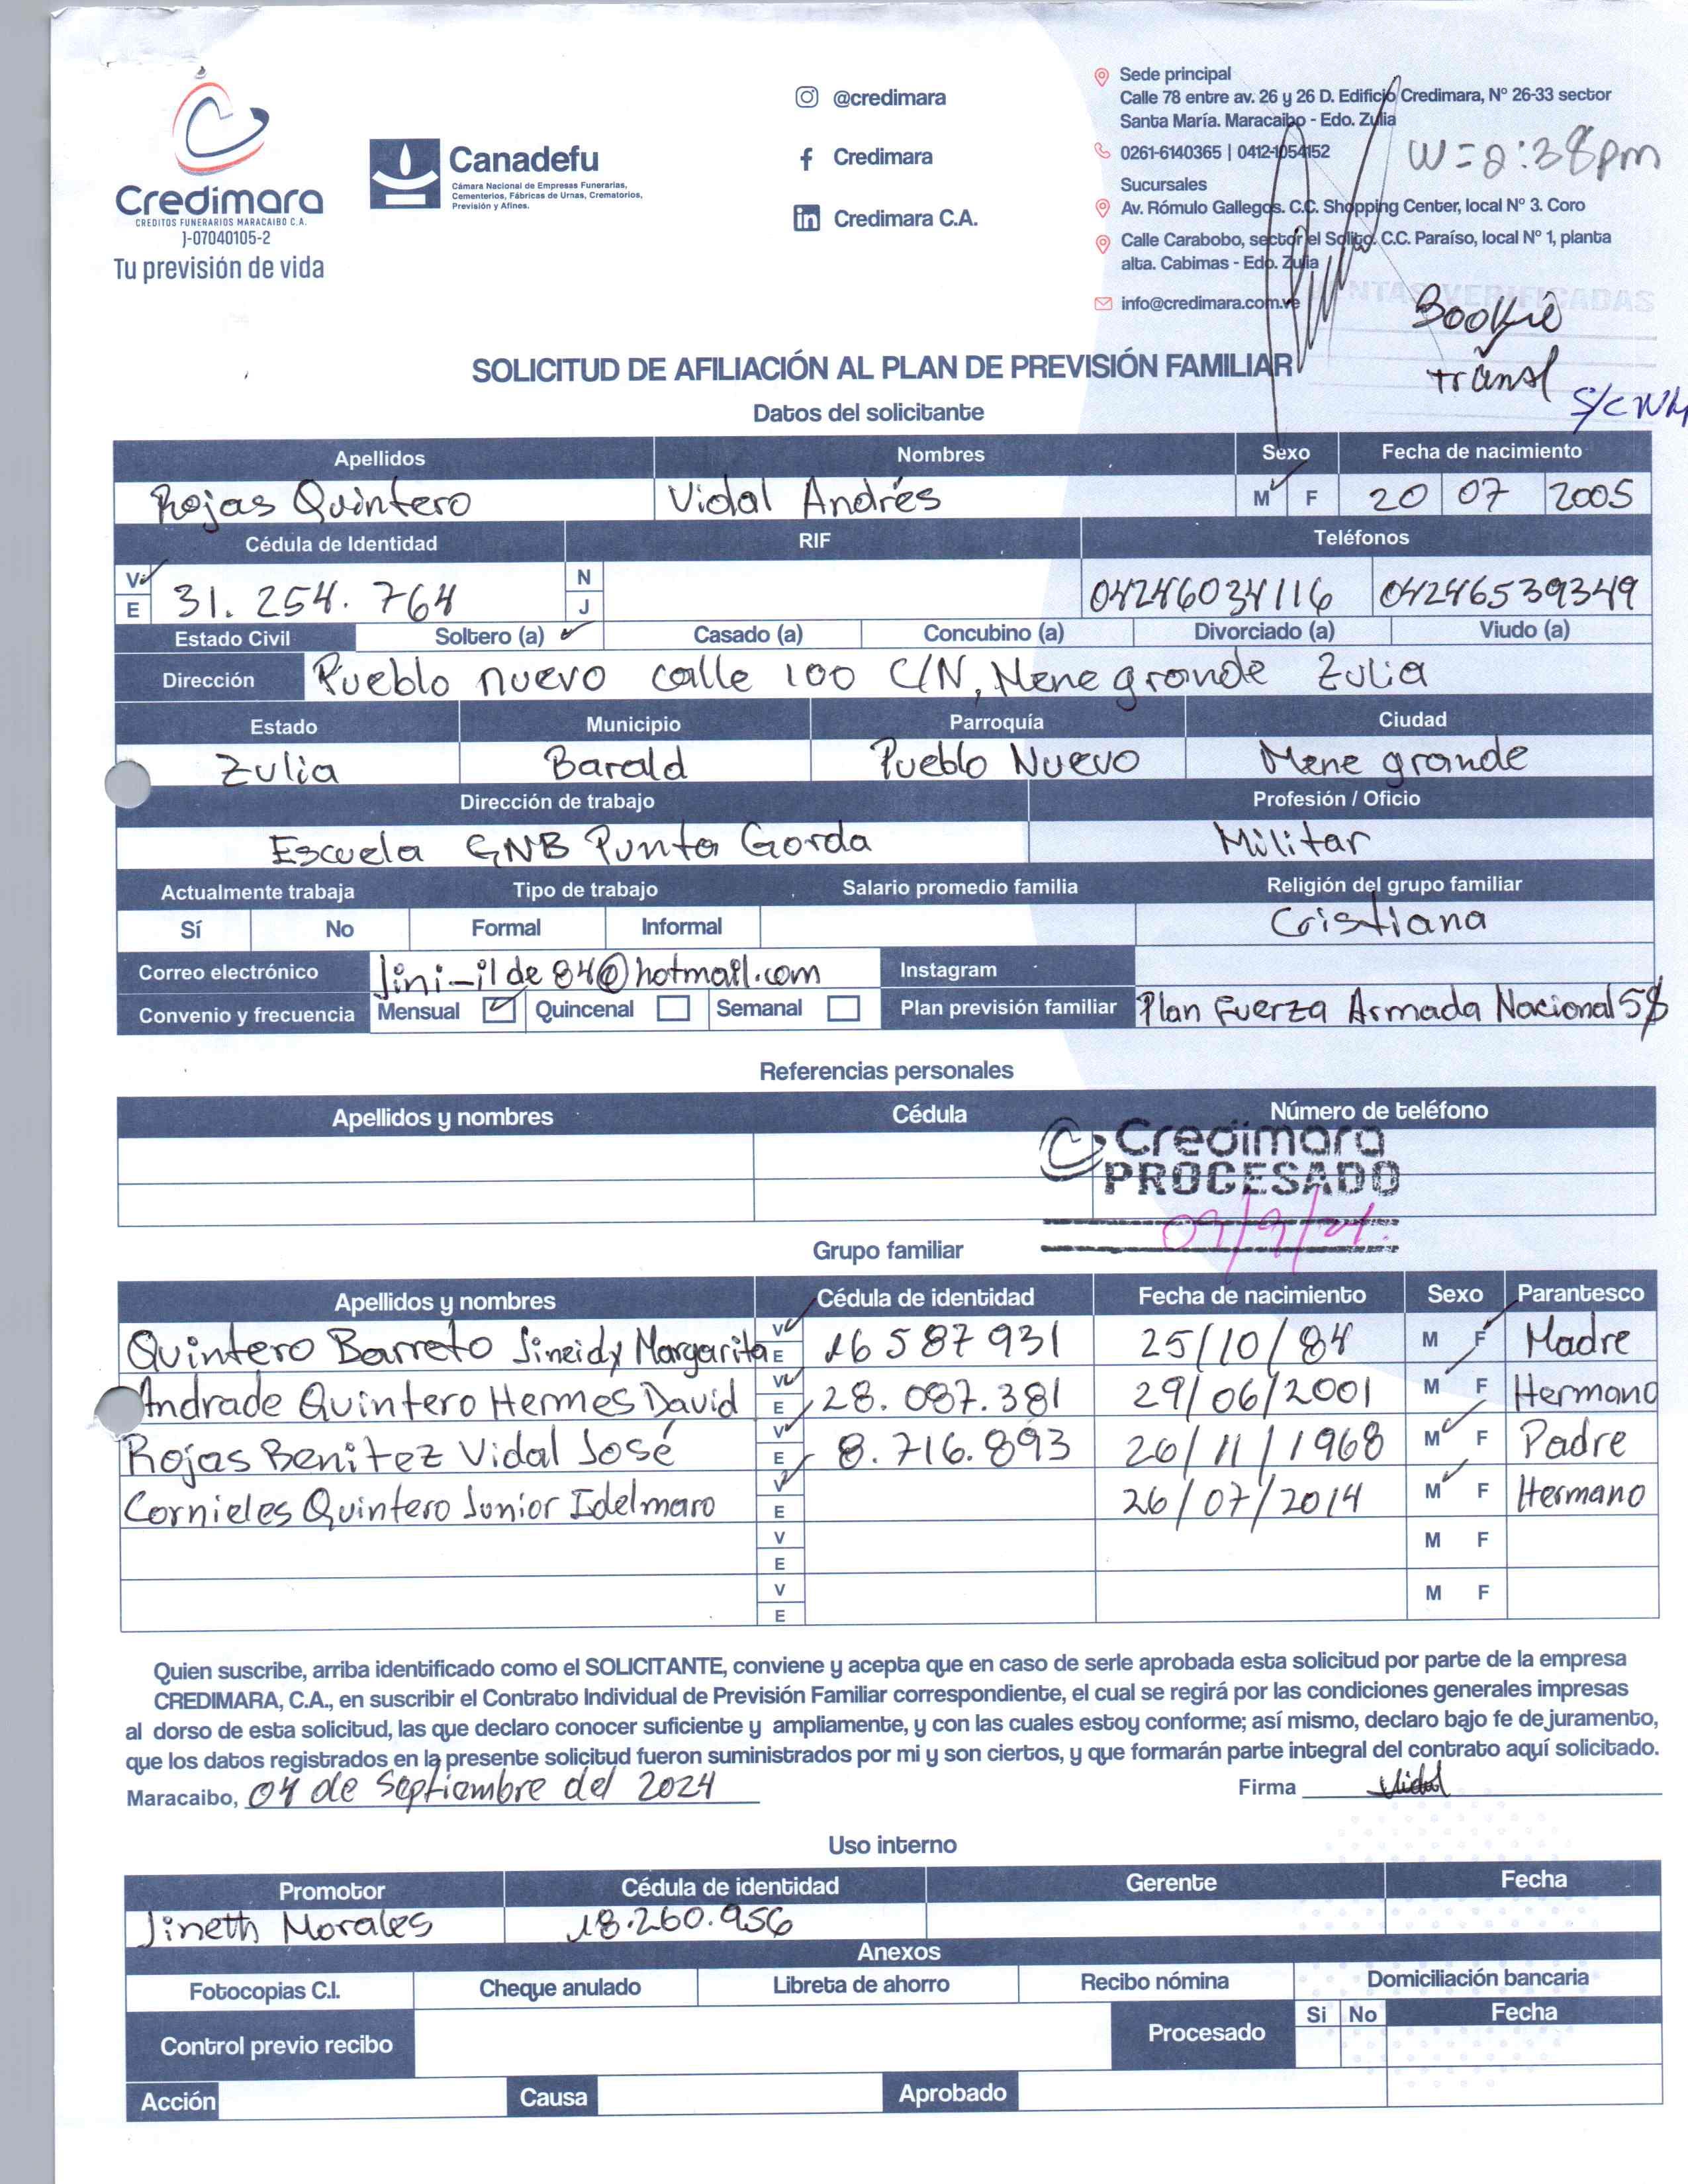 Credimara
CREDITOS FUNERARIOS MARACAIBO C.A.
J-07040105-2
Tu previsión de vida
Canadefu
Cámara Nacional de Empresas Funerarias,
Cementerios, Fábricas de Urnas, Crematorios,
Previsión y Afines.
@credimara
Credimara
Credimara C.A.
Sede principal
Calle 78 entre av. 26 y 26 D. Edificio Credimara, Nº 26-33 sector
Santa María. Maracaibo - Edo. Zulia
0261-6140365 | 0412-1054152
Sucursales
Av. Rómulo Gallegos. C.C. Shopping Center, local Nº 3. Coro
Calle Carabobo, sector el Solito. C.C. Paraíso, local Nº 1, planta
alta. Cabimas - Edo. Zulia
info@credimara.com.ve
W=2:38pm
VERIFICADAS
SOLICITUD DE AFILIACIÓN AL PLAN DE PREVISIÓN FAMILIAR
Datos del solicitante
Apellidos Nombres Sexo Fecha de nacimiento
Rojas Quintero Vidal Andrés M F 20 07 2005
Cédula de Identidad RIF Teléfonos
V E 31.254.764 N J 04246034116 04246539349
Estado Civil Soltero (a) Casado (a) Concubino (a) Divorciado (a) Viudo (a)
Dirección Pueblo nuevo calle 100 C/N, Mene grande Zulia
Estado Municipio Parroquía Ciudad
Zulia Barald Pueblo Nuevo Mene grande
Dirección de trabajo Profesión / Oficio
Escuela GNB Punta Gorda Militar
Actualmente trabaja Tipo de trabajo Salario promedio familia Religión del grupo familiar
Sí No Formal Informal Cristiana
Correo electrónico Jini-ilde84@hotmail.com Instagram
Convenio y frecuencia Mensual Quincenal Semanal Plan previsión familiar Plan Fuerza Armada Nacional 5$
Referencias personales
Apellidos y nombres Cédula Número de teléfono
Credimara
PROCESADO
Grupo familiar
Apellidos y nombres Cédula de identidad Fecha de nacimiento Sexo Parantesco
Quintero Barreto Jineidy Margarita V E 16 587 931 25/10/84 M F Madre
Andrade Quintero Hermes David V E 28.087.381 29/06/2001 M F Hermano
Rojas Benitez Vidal José V E 8.716.893 26/11/1968 M F Padre
Cornieles Quintero Junior Idelmaro V E 26/07/2014 M F Hermano
V E M F
V E M F
Quien suscribe, arriba identificado como el SOLICITANTE, conviene y acepta que en caso de serle aprobada esta solicitud por parte de la empresa
CREDIMARA, C.A., en suscribir el Contrato Individual de Previsión Familiar correspondiente, el cual se regirá por las condiciones generales impresas
al dorso de esta solicitud, las que declaro conocer suficiente y ampliamente, y con las cuales estoy conforme; así mismo, declaro bajo fe de juramento,
que los datos registrados en la presente solicitud fueron suministrados por mi y son ciertos, y que formarán parte integral del contrato aquí solicitado.
Maracaibo, 04 de Septiembre del 2024 Firma Vidal
Uso interno
Promotor Cédula de identidad Gerente Fecha
Jineth Morales 18.260.956
Anexos
Fotocopias C.I. Cheque anulado Libreta de ahorro Recibo nómina Domiciliación bancaria
Control previo recibo Procesado Si No Fecha
Acción Causa Aprobado